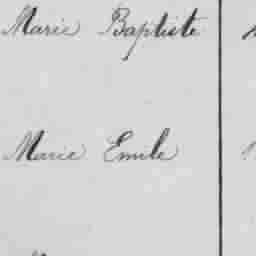 Marie Baptiste
Marie Emile